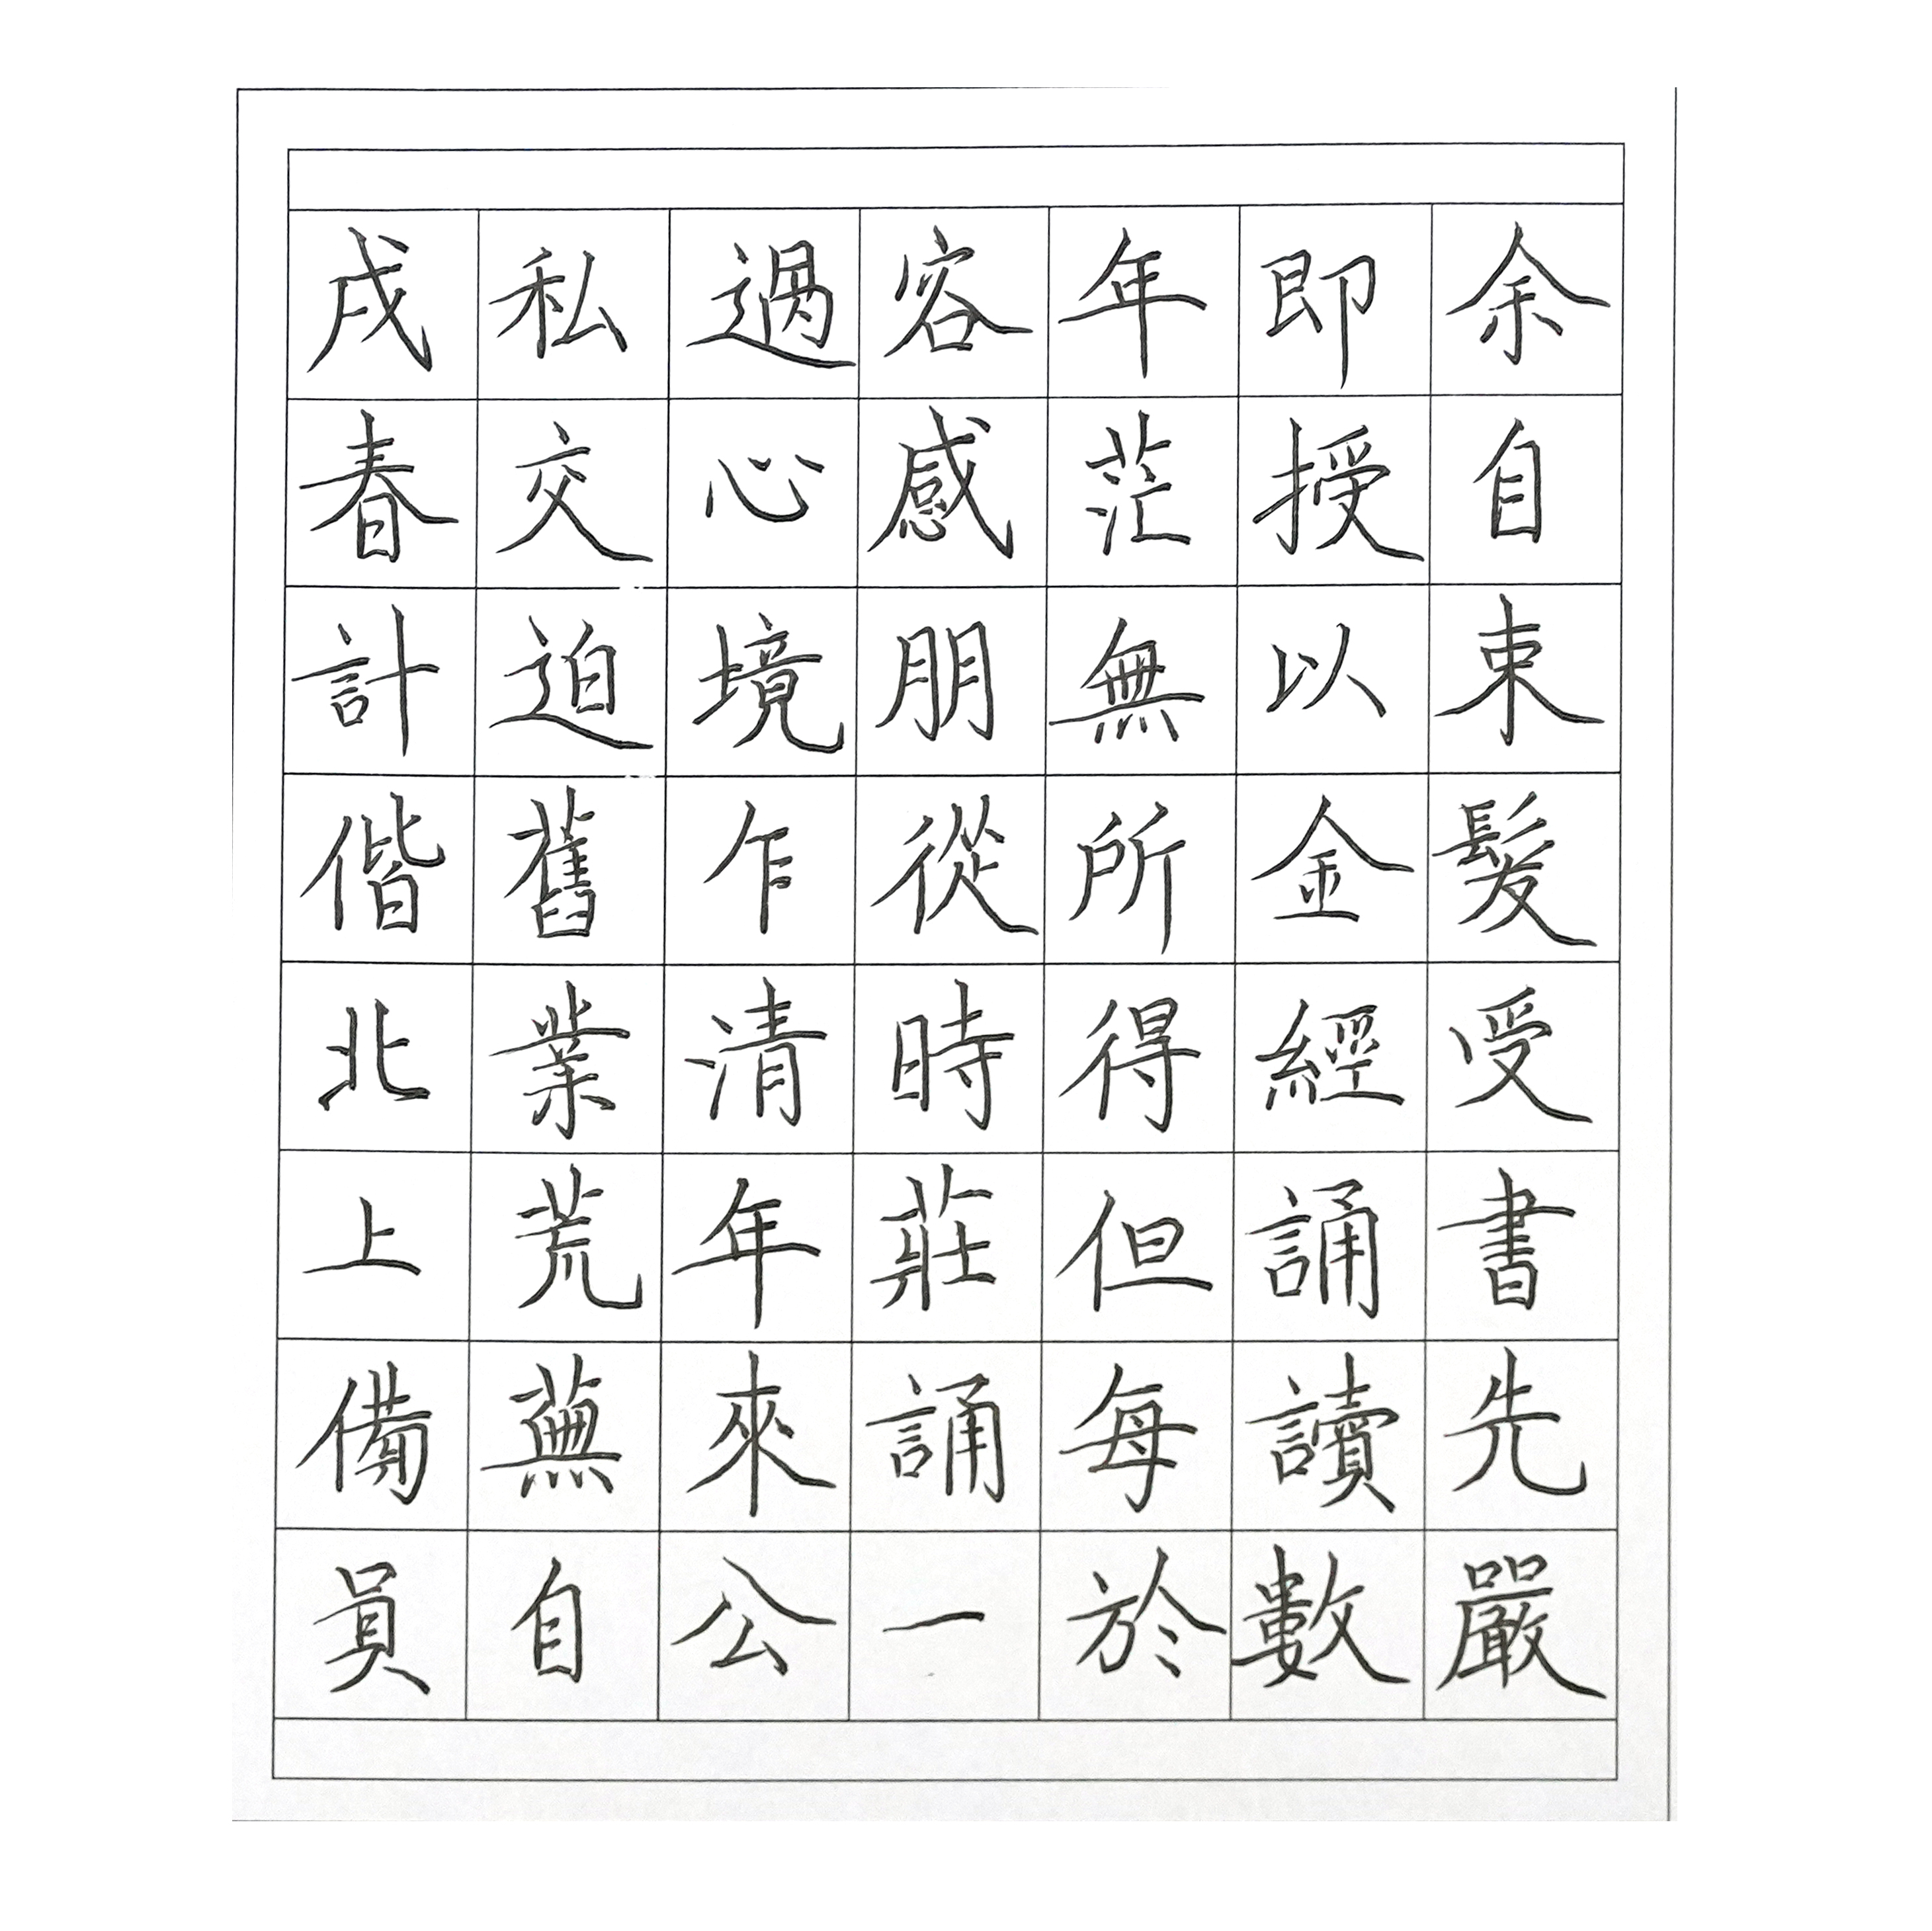 余自束髮受書先嚴
即授以金經誦讀數
年茫無所得但每於
客感朋從時莊誦一
過心境乍清年來公
私交迫舊業荒蕪自
戌春計偕北上備員